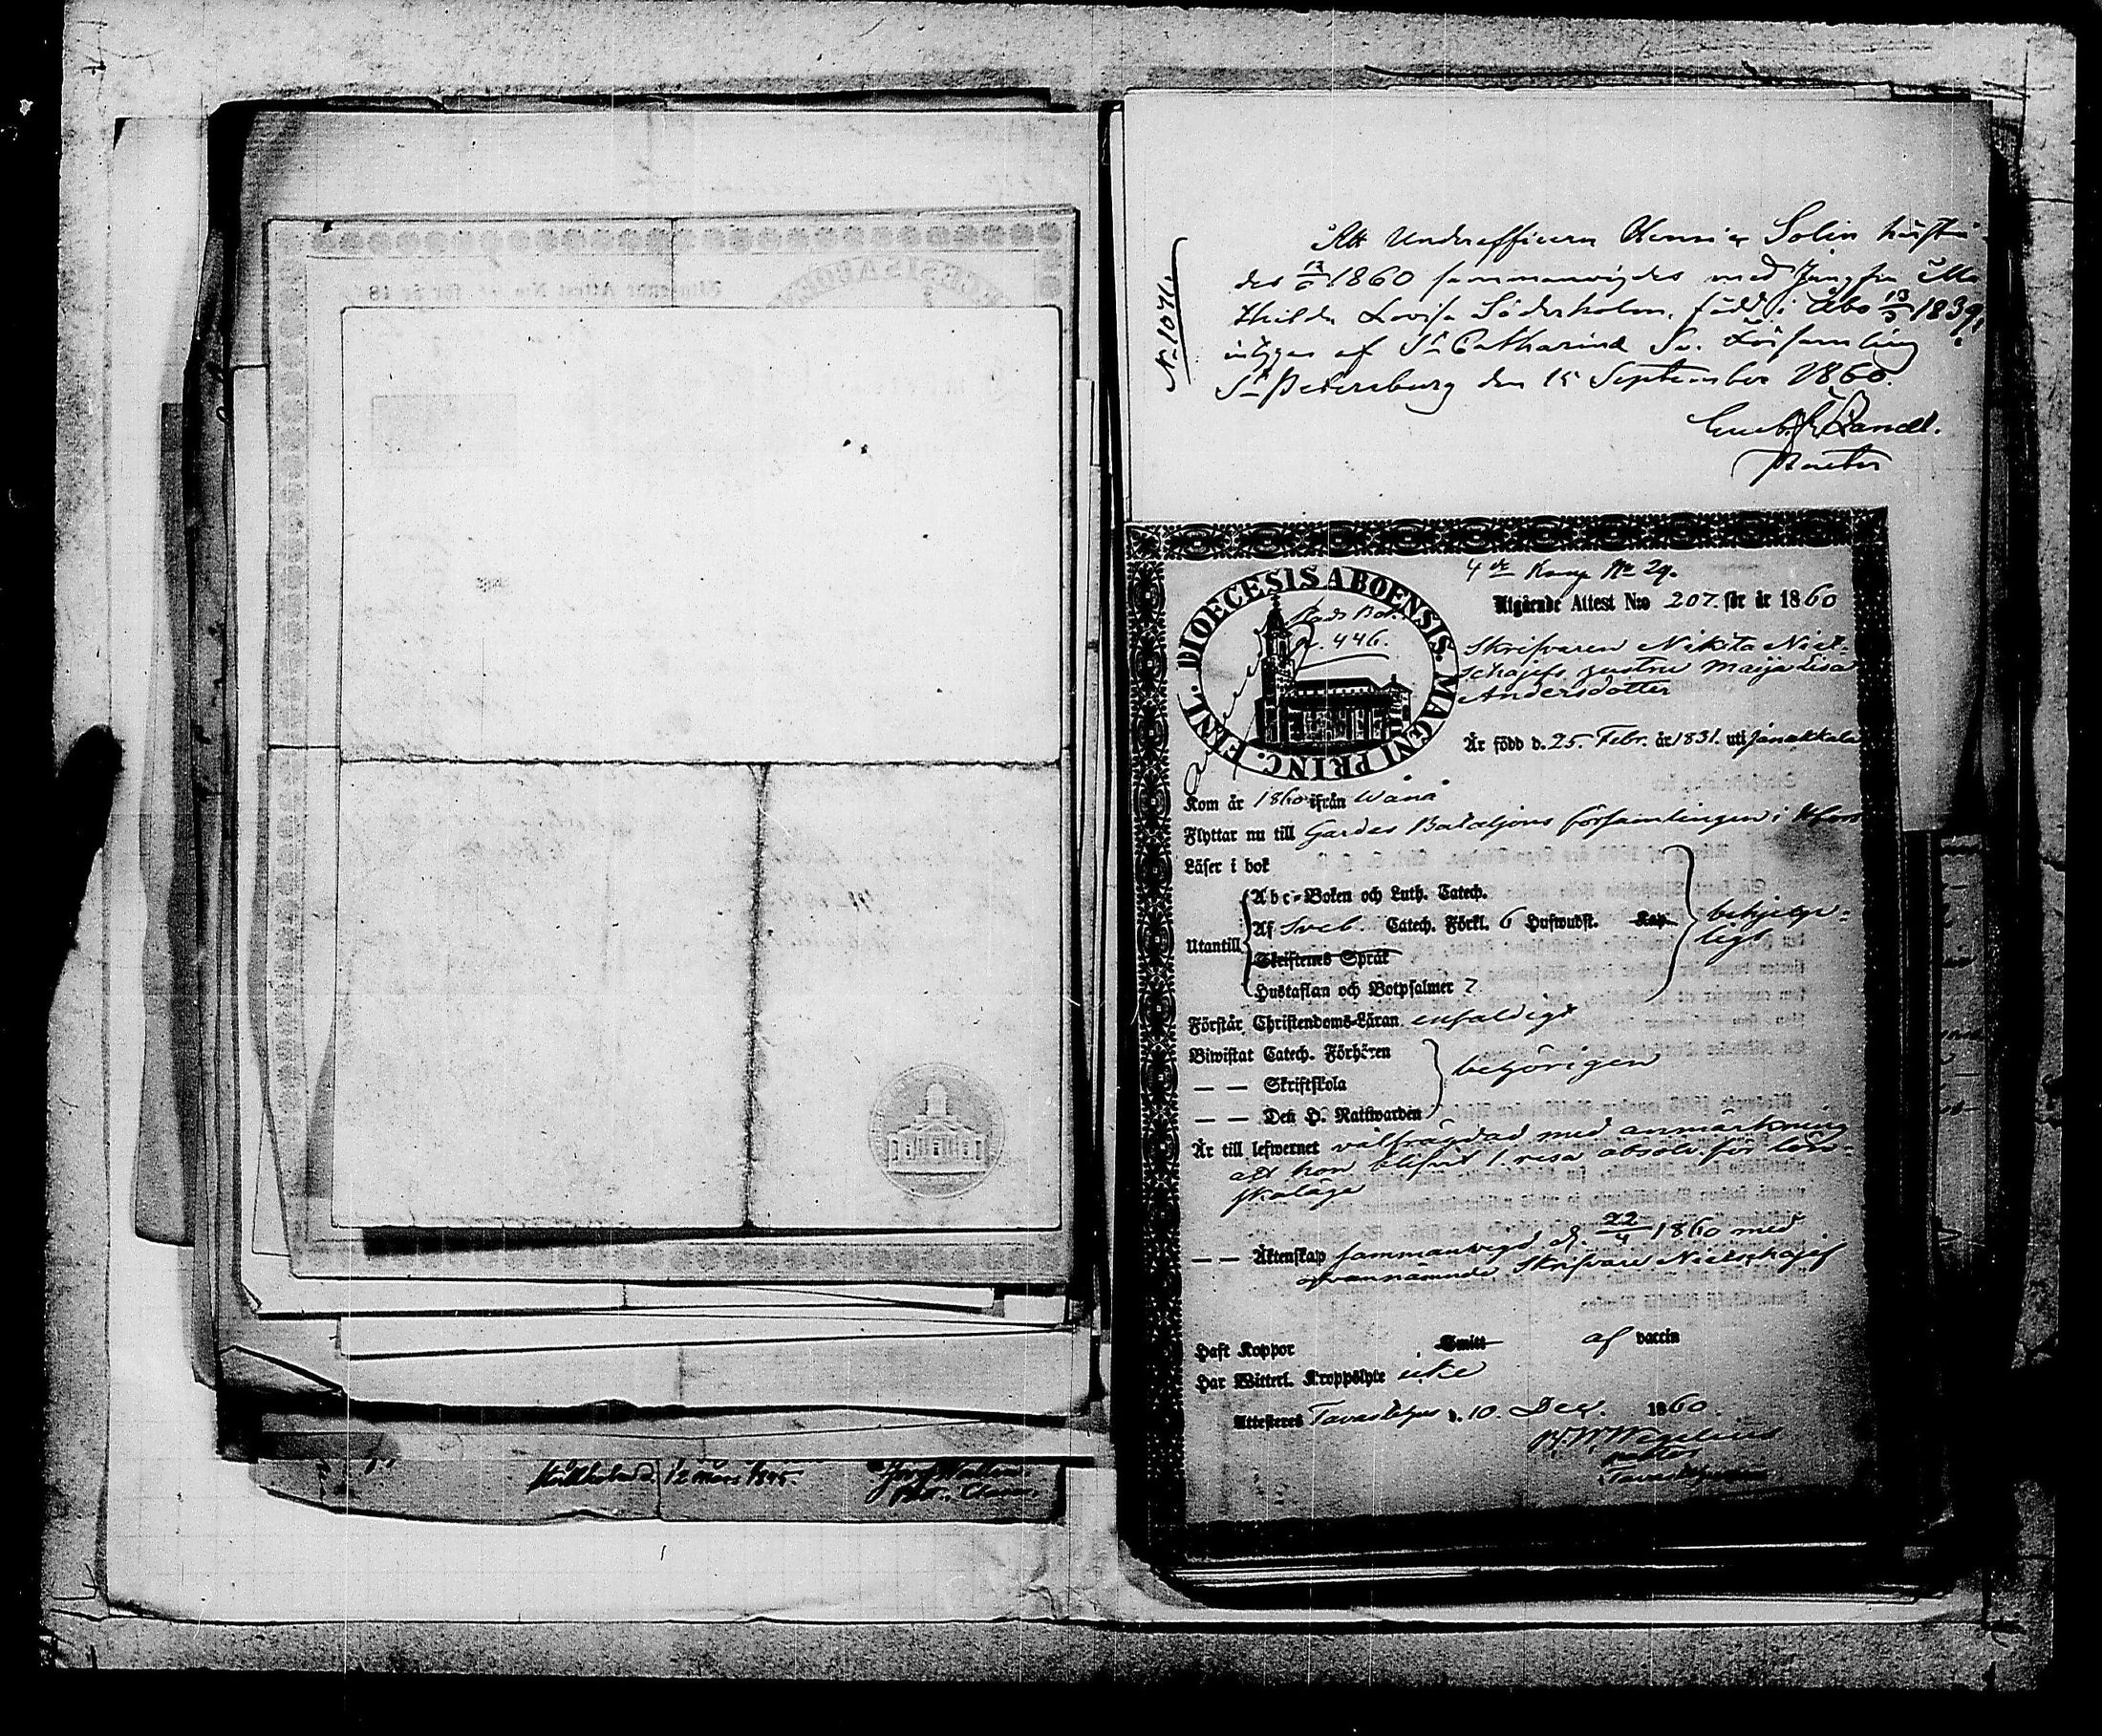 No 1046
Att Underofficern Solin
des 13/6 1860 sammanvigdes med Jungfru Ma
thilda Lovisa Söderholm, född i Åbo 13/3 1839,
intygas af St Catharinæ Sv. Församling
St Petersburg den 15 September 1860.
Pastor
4de Komp No 29.
DIOECESIS ABOENSIS. MAGNI PRINC. FINL.
Bok.
p. 446.
Utgående Attest N:o 207. för år 1860
Skrifvaren Nikita Niet-
schajefs hustru Maija Lisa
Andersdotter
Är född d. 25. Febr. år 1831. uti Janakkala
Kom år 1860 ifrån Wånå
Flyttar nu till Gardes Bataljons församlingen i Hfors
Läser i bok
Utantill
Abc-Boken och Luth. Catech.
Af Sveb. Catech. Förkl. 6 Hufwudst. Kap.
Skriftenes Språk
Hustaflan och Botpsalmer 7
behjelpe-
ligt
Förstår Christendoms-Läran enfaldigt
Biwistat Catech. Förhören
— — Skriftskola
— — Den H. Nattwarden
behörigen
Är till lefwernet välfrägdad med anmärkning
att hon blifvit 1. resa absolv. för löns-
kaläge
— — Äktenskap sammanvigd d. 22/4 1860 med
ofvannämnde Skrifvare Nietschajef
Haft Koppor Smitt af vaccin
Har Witterl. Kroppslyte icke
Attesteras Tavastehus d. 10. Dec. 1860.
Wegelius
pastor
12 Mars 1845.